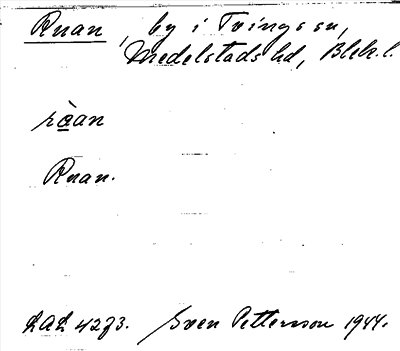 Ruan, by i Tvings sn,
Medelstads hd, Blek. l.
ròan
Ruan.
LAL 4273. Sven Pettersson 1944.